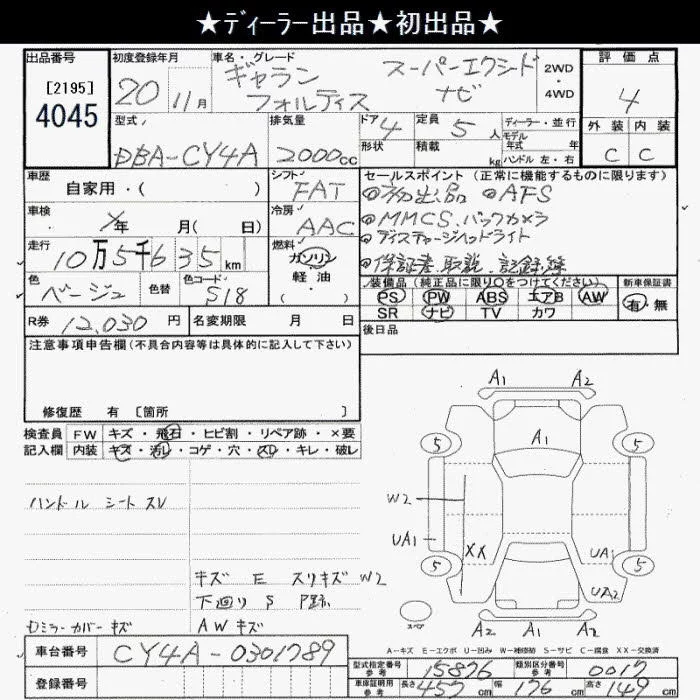 ★ディーラー出品★初出品★
出品番号 初度登録年月 車名・グレード 評価点
[2195]
4045
20 11月 ギャラン フォルティス スーパーエクシード ナビ 2WD・4WD 4
型式 排気量 ドア 4 定員 5人 ディーラー・並行 外装 内装
形状 積載 kg モデル年式 年式
ハンドル 左・右
DBA-CY4A 2000cc C C
車歴 シフト セールスポイント(正常に機能するものに限ります)
自家用・( ) FAT ◎初出品 ◎AFS
車検 年 月( 日) 冷房 AAC ◎MMCS、バックカメラ
走行 燃料 ◎ディスチャージヘッドライト
10万5千635km ガソリン・軽油・( ) ◎保証書、取説、記録簿
色 色替 色コード 装備品(純正品に限り○をつけてください) 新車保証書
ベージュ S18 PS PW ABS エアB AW 有・無
SR ナビ TV カワ
R券 12,030円 名変期限 月 日 後日品
注意事項申告欄(不具合内容等は具体的に記入して下さい)
修復歴 有 [箇所 ]
検査員 FW キズ・飛石・ヒビ割・リペア跡・×要
記入欄 内装 キズ・汚レ・コゲ・穴・スレ・キレ・破レ
ハンドル シート スレ
キズ E スリキズ W2
下廻り S P跡
ドミラーカバー キズ AW キズ
A1 A2
A1
5 5
W2
UA1 XX UA1
5 5
UA2
スペア A2 A1 A2
A−キズ E−エクボ U−凹み W−補修跡 S−サビ C−腐食 XX−交換済
車台番号 CY4A-0301789
登録番号
型式指定番号 参考 15876 類別区分番号 参考 0017
車庫証明用 参考 長さ 457cm 幅 176cm 高さ 149cm